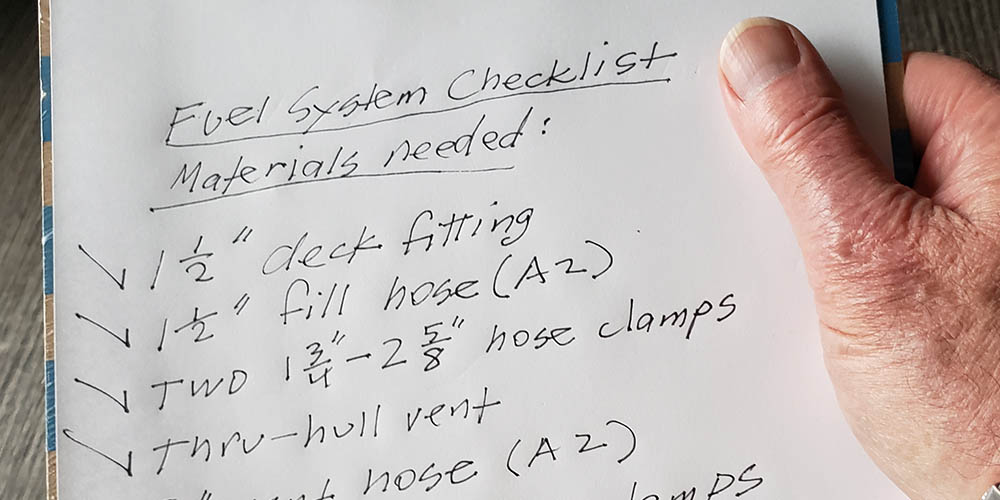 Fuel System Checklist
Materials needed:
✓ 1 1/2" deck fitting
✓ 1 1/2" fill hose (A2)
✓ TWO 1 3/4" - 2 5/8" hose clamps
✓ Thru-hull vent
hose (A2)